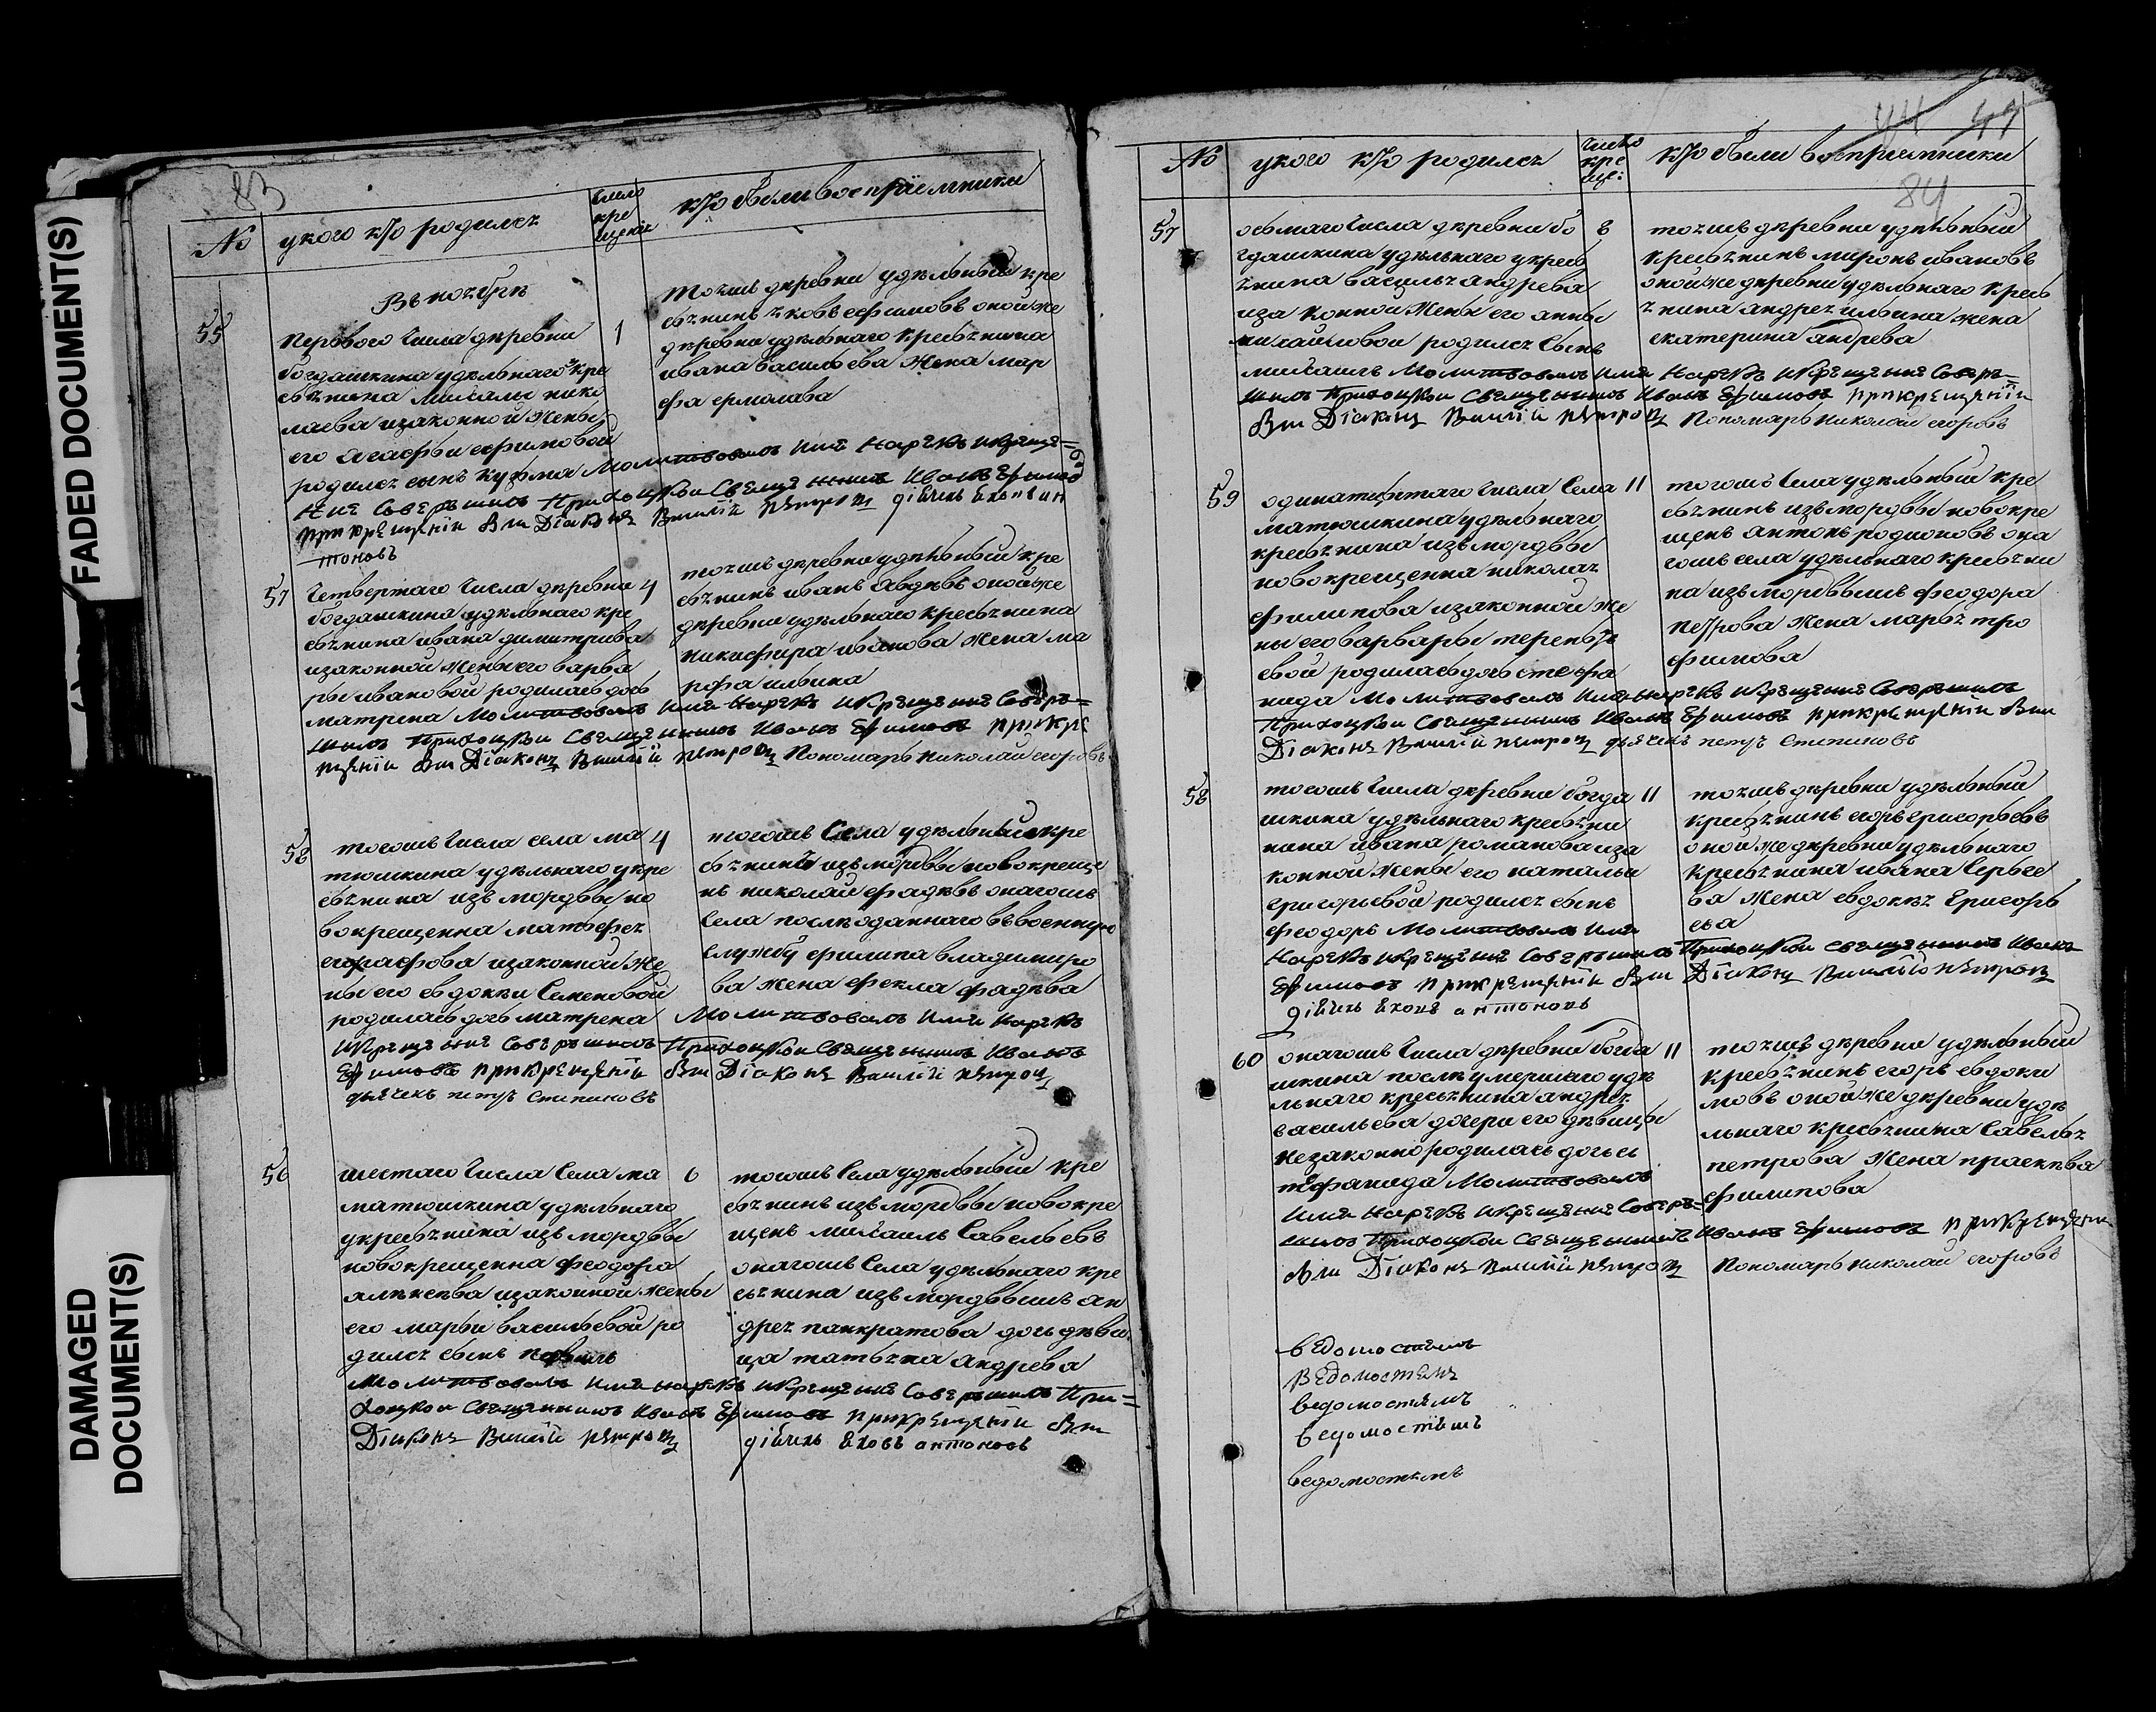 FADED DOCUMENT(S)
DAMAGED
DOCUMENT(S)
83
No
у кого кто родился
число
кре
щения
кто были восприемники
Въ ноябрѣ
55
перваго числа деревни
1
богдашкина удѣльнаго кре
стьянина михаилы нико
лаева иззаконной жены
его агафьи ефимовой
родился сынъ кузма Молитвовалъ имя нарѣкъ и креще-
ние совершилъ Приходской священникъ Иванъ Ефимовъ
при крещении был Диаконъ Василий петровъ дьячекъ яковъ ан
тоновъ
тояжъ деревни удѣльный кре
стьянинъ яковъ ефимовъ оной же
деревни удѣльнаго крестьянина
ивана васильева жена мар
фа ермолаева
57
четвертаго числа деревни
4
богдашкина удѣльнаго кре
стьянина ивана димитриева
иззаконной жены его варва
ры ивановой родилась дочь
матрена Молитвовалъ имя нарѣкъ и крещение совер-
шилъ Приходской священникъ Иванъ Ефимовъ при кре
щении был Диаконъ Василий петровъ Пономарь николай егоровъ
тояжъ деревни удѣльный кре
стьянинъ иванъ авдѣевъ оной же
деревни удѣльнаго крестьянина
никифира иванова жена ма
рфа ильина
58
тогожъ числа села ма
4
тюшкина удѣльнаго у кре
стьянина изъ мордвы но
вокрещенна матьфея
евграфова иззаконной же
ны его евдокии семеновой
родилась дочь матрена Молитвовалъ имя нарѣкъ
и крещение совершилъ Приходской священникъ Иванъ
Ефимовъ при крещении был Диаконъ Василий петровъ
дьячекъ петръ степановъ
тогожъ села удѣльный кре
стьянинъ изъ мордвы новокреще
нъ николай фадѣевъ онагожъ
села послѣ отданнаго въ военную
службу филипа владимиро
ва жена фекла фадѣева
56
шестаго числа села ма
6
матюшкина удѣльнаго
у крестьянина изъ мордвы
новокрещенна феодора
алѣксѣева иззаконной жены
его марьи васильевой ро
дился сынъ
Молитвовалъ имя нарѣкъ и крещение совершилъ При-
ходской священникъ Иванъ Ефимовъ при крещении был
Диаконъ Василий петровъ дьячекъ яковъ антоновъ
тогожъ села удѣльный кре
стьянинъ изъ мордвы новокре
щенъ михаилъ савельевъ
онагожъ села удѣльнаго кре
стьянина изъ мордвыжъ ан
дрея панкратова дочь дѣви
ца татьяна андреева
44 47
84
No
у кого кто родился
число
кре
ще:
кто были восприемники
57
осьмаго числа деревни бо
8
гдашкина удѣльнаго у кресть
янина василья андреева
иззаконной жены его анны
михайловой родился сынъ
михаилъ Молитвовалъ имя нарѣкъ и крещение совер-
шилъ Приходской священникъ Иванъ Ефимовъ при крещении
был Диаконъ Василий петровъ Пономарь николай егоровъ
тояжъ деревни удѣльный
крестьянинъ миронъ ивановъ
оной же деревни удѣльнаго кресть
янина андрея ильина жена
екатерина андреева
59
одинатцатаго числа села
11
матюшкина удѣльнаго
крестьянина изъ мордвы
новокрещенна николая
филипова иззаконной же
ны его варвары терентье
евой родилась дочь стефа
нида Молитвовалъ имя нарѣкъ и крещение совершилъ
Приходской священникъ Иванъ Ефимовъ при крещении был
Диаконъ Василий петровъ дьячекъ петръ степановъ
тогожъ села удѣльный кре
стьянинъ изъ мордвы новокре
щенъ антонъ родионовъ она
гожъ села удѣльнаго крестьяни
на изъ мордвыжъ феодора
петрова жена марья тро
фимова
58
тогожъ числа деревни богда
11
шкина удѣльнаго крестьяни
нина ивана романова изза
конной жены его натальи
григорьевой родился сынъ
феодоръ Молитвовалъ имя
нарѣкъ и крещение совершилъ Приходской священникъ Иванъ
Ефимовъ при крещении был Диаконъ Василий петровъ
дьячекъ яковъ антоновъ
тояжъ деревни удѣльный
крестьянинъ егоръ григорьевъ
оной же деревни удѣльнаго
крестьянина ивана сергее
ва жена евдокия григорь
ева
60
онагожъ числа деревни богда
11
шкина послѣ умершаго удѣ
льнаго крестьянина андрея
васильева дочери его дѣвицы
незаконно родилась дочь с
тефанида Молитвовалъ
имя нарѣкъ и крещение совер-
шилъ Приходской священникъ Иванъ Ефимовъ при крещении
был Диаконъ Василий петровъ Пономарь николай егоровъ
тояжъ деревни удѣльный
крестьянинъ егоръ евдоки
мовъ оной же деревни удѣ
льнаго крестьянина савелья
петрова жена прасковья
филипова
ведомостямъ
ведомостямъ
ведомостямъ
ведомостямъ
ведомостямъ